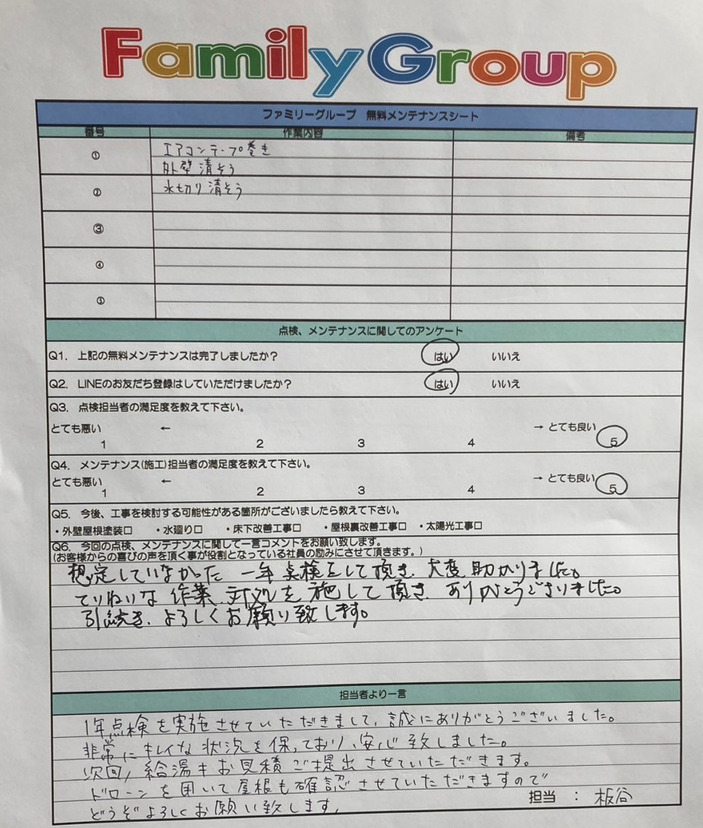 Family Group
ファミリーグループ 無料メンテナンスシート
番号 作業内容 備考
① エアコンテープ巻き
外壁清そう
② 水切り清そう
③
④
⑤
点検、メンテナンスに関してのアンケート
Q1. 上記の無料メンテナンスは完了しましたか？ はい いいえ
Q2. LINEのお友だち登録はしていただけましたか？ はい いいえ
Q3. 点検担当者の満足度を教えて下さい。
とても悪い ← → とても良い
1 2 3 4 5
Q4. メンテナンス(施工)担当者の満足度を教えて下さい。
とても悪い ← → とても良い
1 2 3 4 5
Q5. 今後、工事を検討する可能性がある箇所がございましたら教えて下さい。
・外壁屋根塗装□ ・水廻り□ ・床下改善工事□ ・屋根裏改善工事□ ・太陽光工事□
Q6. 今回の点検、メンテナンスに関して一言コメントをお願い致します。
(お客様からの喜びの声を頂く事が役割となっている社員の励みにさせて頂きます。)
想定していなかった 一年点検をして頂き 大変助かりました。
ていねいな 作業、対処を 施して頂き ありがとうございました。
引続き、よろしくお願い致します。
担当者より一言
1年点検を実施させていただきまして、誠にありがとうございました。
非常にキレイな状況を保っており、安心致しました。
次回、給湯キお見積ご提出させていただきます。
ドローンを用いて屋根も確認させていただきますので
どうぞよろしくお願い致します。
担当 ： 板谷